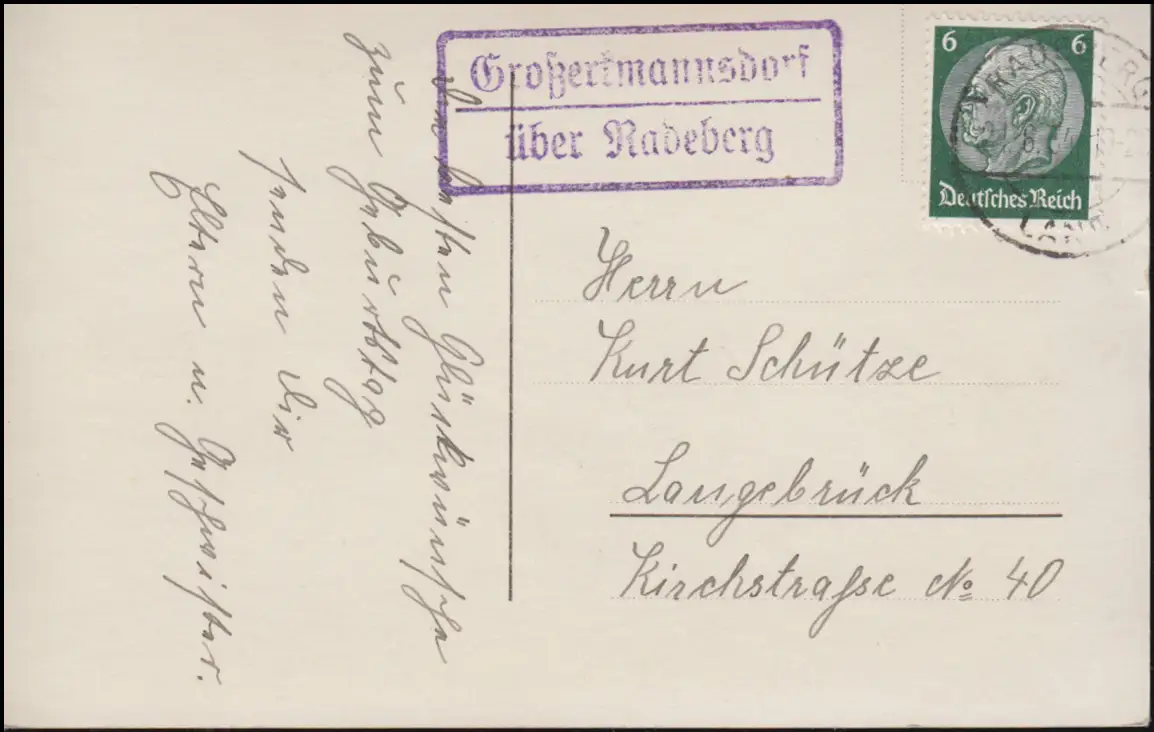 Großerkmannsdorf
über Radeberg
6 6
Deutsches Reich
LAND
Die besten Glückwünsche
zum Geburtstag
senden Dir
Eltern u. Geschwister.
Herrn
Kurt Schütze
Langebrück
Kirchstraße No 40